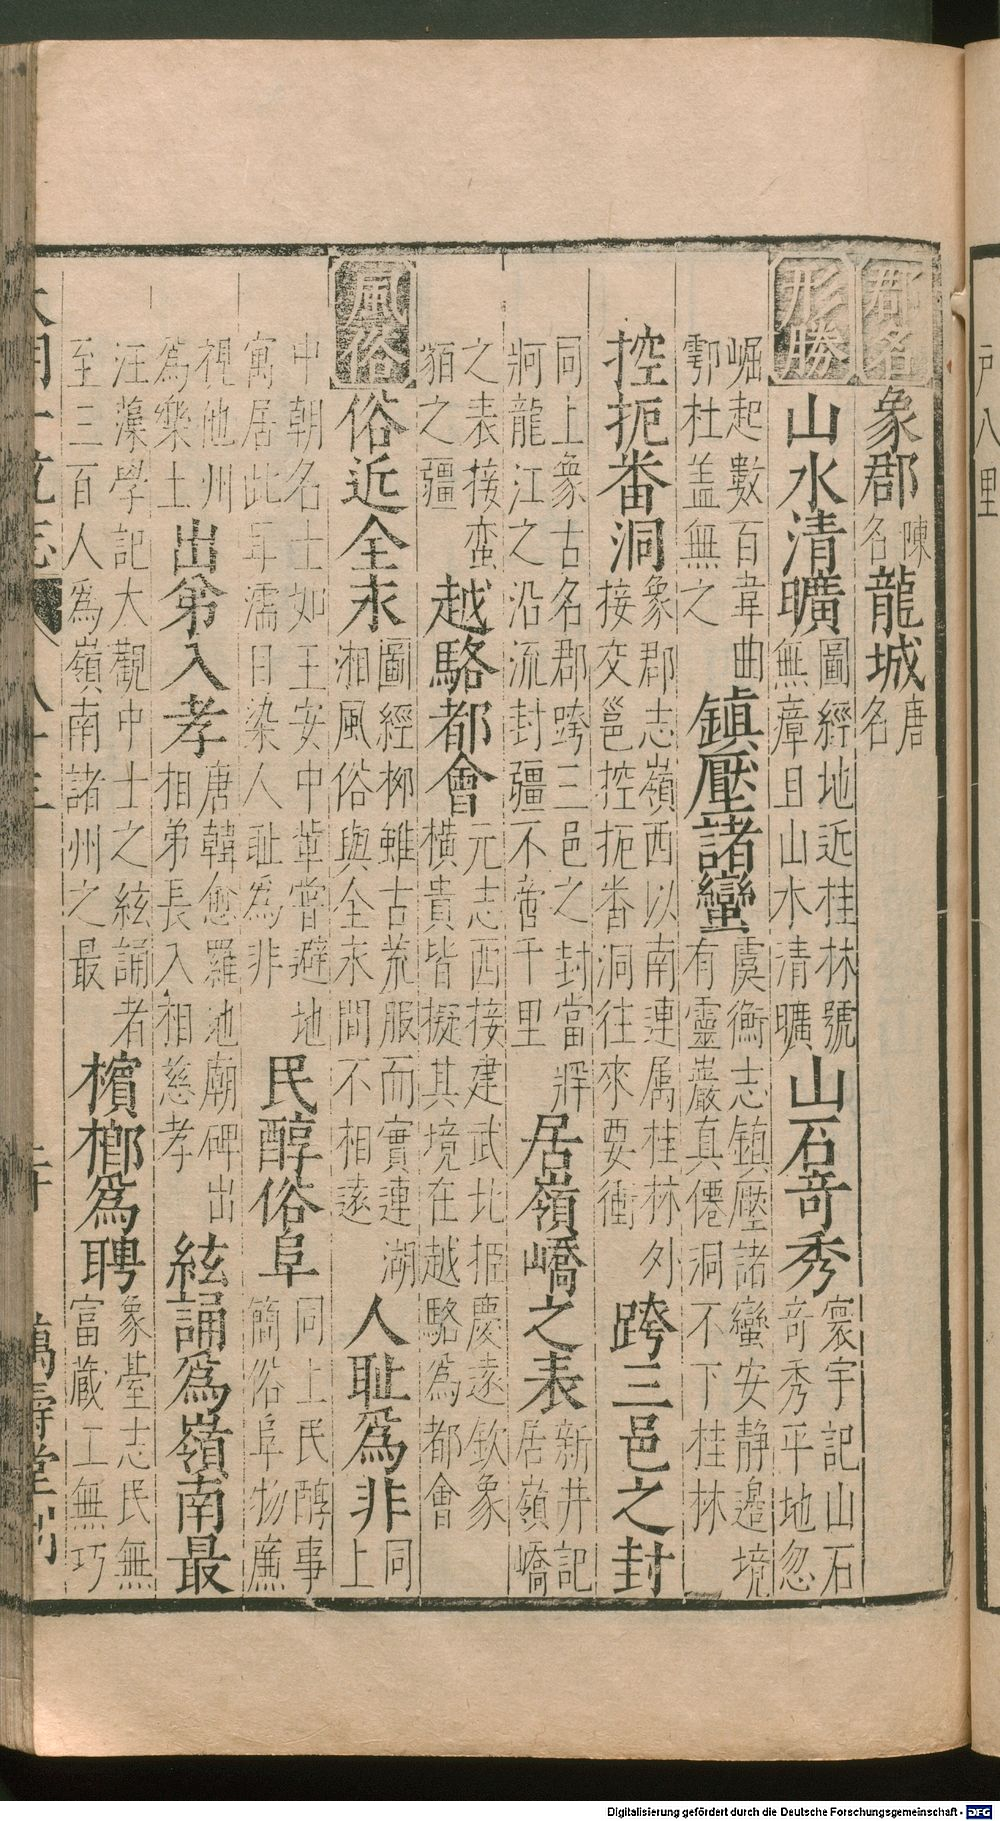 戸八里
郡名 象郡 陳名 龍城 唐名
形勝 山水清曠 圖經地近桂林號無瘴且山水清曠 山石竒秀 寰宇記山石竒秀平地忽
崛起數百韋曲鄠杜蓋無之 鎮壓諸蠻 虞衡志鎮壓諸蠻安静邉境有靈巖真僊洞不下桂林
控扼番洞 象郡志嶺西以南連属桂林外接交邕控扼畨洞往來要衝 跨三邑之封
同上象古名郡跨三邑之封當牂牁龍江之沿流封疆不啻千里 居嶺嶠之表 新井記居嶺嶠
之表接蛮貊之疆 越駱都會 元志西接建武北拒慶遠欽象橫貴皆擬其境在越駱為都會
風俗 俗近全永 圖經柳雖古荒服而實連湖湘風俗與全永間不相遠 人耻爲非 同上
中朝名士如王安中軰嘗避地寓居此耳濡目染人耻為非 民醇俗阜 同上民醇事簡俗阜物廉
視他州為樂土 出弟入孝 唐韓愈羅池廟碑出相弟長入相慈孝 絃誦爲嶺南最
汪藻學記大觀中士之絃誦者至三百人為嶺南諸州之最 檳榔爲聘 象臺志民無富藏工無巧
大明一統志 八十三 萬壽堂刊
Digitalisierung gefördert durch die Deutsche Forschungsgemeinschaft - DFG